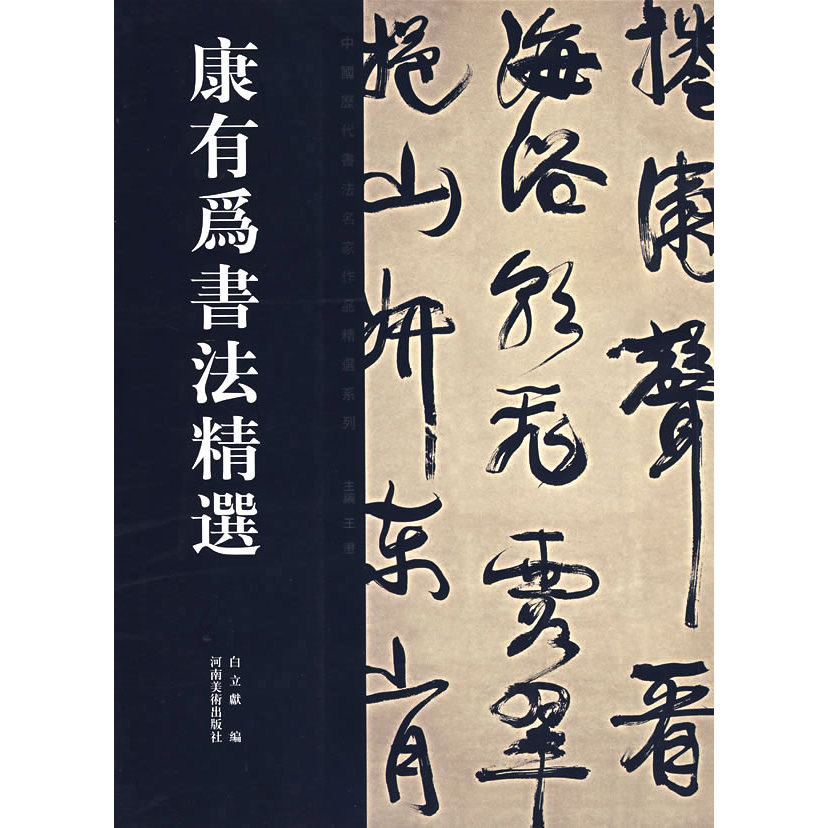 康有爲書法精選
中國歷代書法名家作品精選系列 主編 王澄
白立獻 編
河南美術出版社
聲看
海浴
露翠
山
東